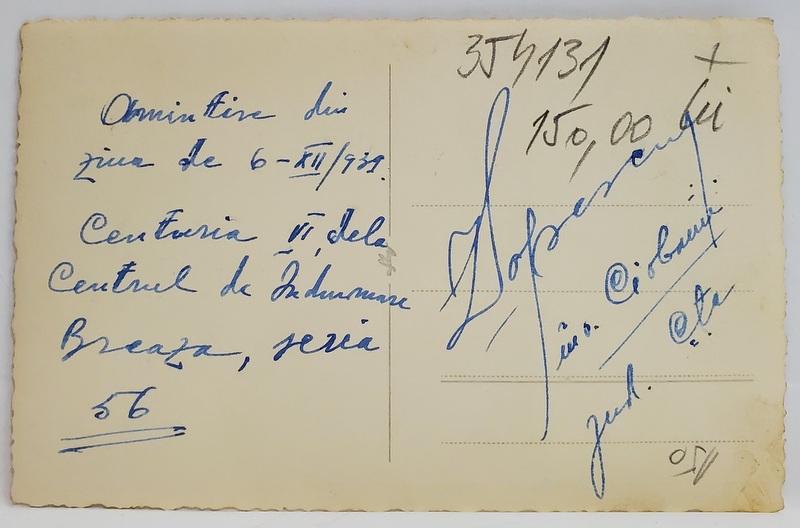 Amintire din
ziua de 6-XII/939.
Centuria VI, dela
Centrul de Îndrumare
Breaza, seria
56
354131
+
150,00 Lei
Popescu
înv. Ciobănița
jud. C-ța
150